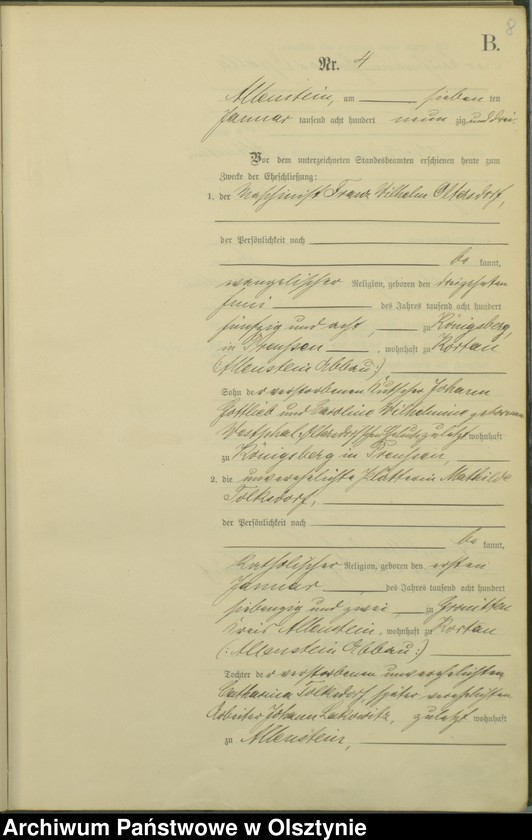 8
B.
Nr. 4
Allenstein, am sieben ten
Januar tausend acht hundert neun zig und drei.
Vor dem unterzeichneten Standesbeamten erschienen heute zum
Zwecke der Eheschließung:
1. der Maschinist Franz Wilhelm Oltersdorf,
der Persönlichkeit nach
be kannt,
evangelischer Religion, geboren den dreizehnten
Juni des Jahres tausend acht hundert
fünfzig und acht, zu Königsberg,
in Preußen, wohnhaft zu Kortau
(Allenstein Abbau:)
Sohn der verstorbenen Kutscher Johann
Gottlieb und Caroline Wilhelmine geborenen
Westphal-Oltersdorf'schen Eheleute zuletzt wohnhaft
zu Königsberg in Preussen,
2. die unverehelichte Plätterin Mathilde
Tolksdorf,
der Persönlichkeit nach
be kannt,
katholischer Religion, geboren den ersten
Januar des Jahres tausend acht hundert
siebenzig und zwei, zu
Kreis Allenstein, wohnhaft zu Kortau
(:Allenstein Abbau:)
Tochter der verstorbenen unverehelichten
Catharina Tolksdorf, später verehelichten
Arbeiter Johann zuletzt wohnhaft
zu Allenstein,
Archiwum Państwowe w Olsztynie